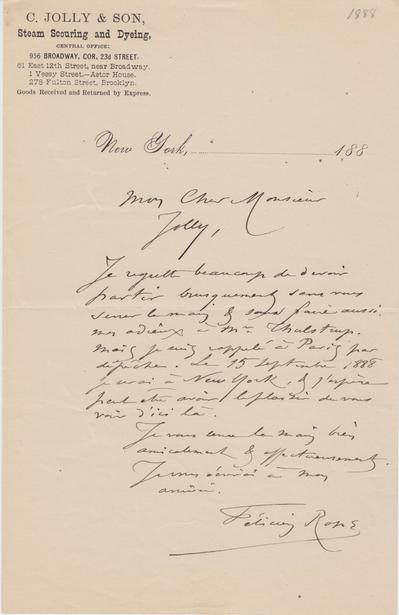 1888
C. JOLLY & SON,
Steam Scouring and Dyeing,
CENTRAL OFFICE:
956 BROADWAY, COR. 23d STREET.
61 East 12th Street, near Broadway.
1 Vesey Street.—Astor House.
278 Fulton Street, Brooklyn.
Goods Received and Returned by Express.
New York, 188
Mon Cher Monsieur
Jolly,
Je regrette beaucoup de devoir
partir brusquement sans vous
serrer la main & sans faire aussi
mes adieux à Mr Thulstrup.
Mais je suis rappelé à Paris par
dépêche. Le 15 septembre 1888
je serai à New York & j'espère
peut être avoir le plaisir de vous
voir d'ici là.
Je vous serre la main bien
amicalement & affectueusement.
Je vous écrirai à mon
arrivée.
Félicien Rops